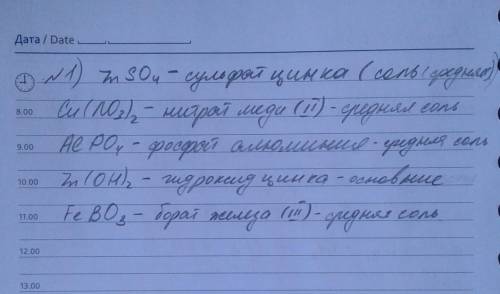 Дата / Date
№1) ZnSO4 - сульфат цинка (соль (средняя)
8.00 Cu(NO3)2 - нитрат меди (II) - средняя соль
9.00 AlPO4 - фосфат алюминия - средняя соль
10.00 Zn(OH)2 - гидроксид цинка - основние
11.00 FeBO3 - борат железа (III) - средняя соль
12.00
13.00